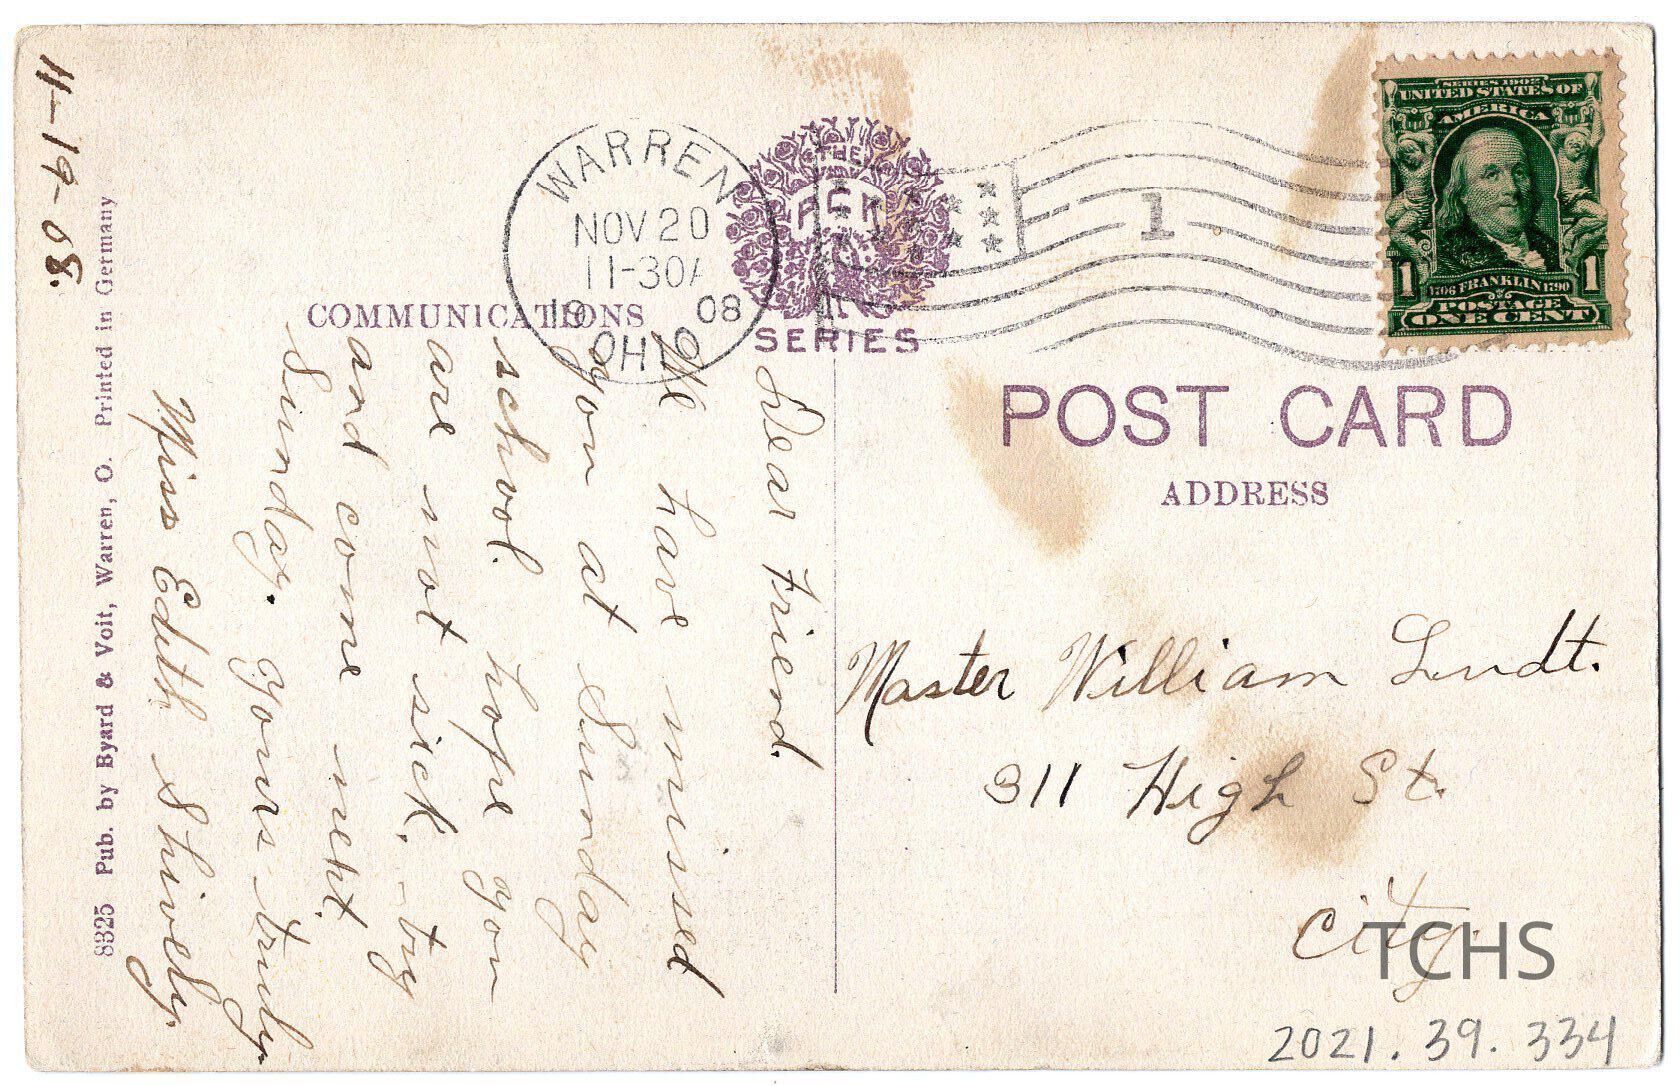 11-19-08.
8325 Pub. by Byard & Voit, Warren, O. Printed in Germany
COMMUNICATIONS
WARREN
NOV 20
11-30A
19 08
OHIO
THE
SERIES
1
SERIES 1902
UNITED STATES OF
AMERICA
1 1
1706 FRANKLIN 1790
POSTAGE
ONE CENT
POST CARD
ADDRESS
Dear Friend.
We have missed
you at Sunday
school. hope you
are not sick. try
and come next
Sunday. yours truly
Miss Edith Shively.
Master William Lundt.
311 High St.
City.
TCHS
2021.39.334